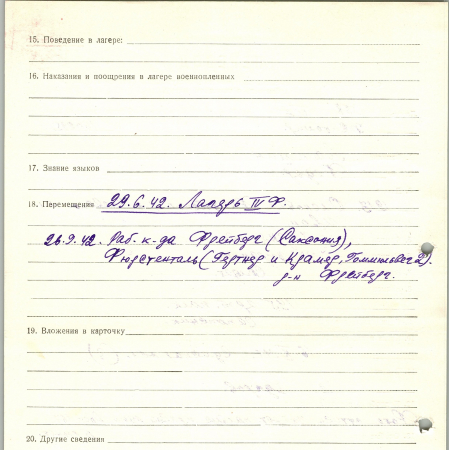 15. Поведение в лагере:
16. Наказания и поощрения в лагере военнопленных
17. Знание языков
18. Перемещения 29.6.42. Лагерь IV Ф.
26.9.42. Раб. к-да Фрейберг (Саксония),
(Гертнер и Крамер,
р-н Фрейберг.
19. Вложения в карточку
20. Другие сведения